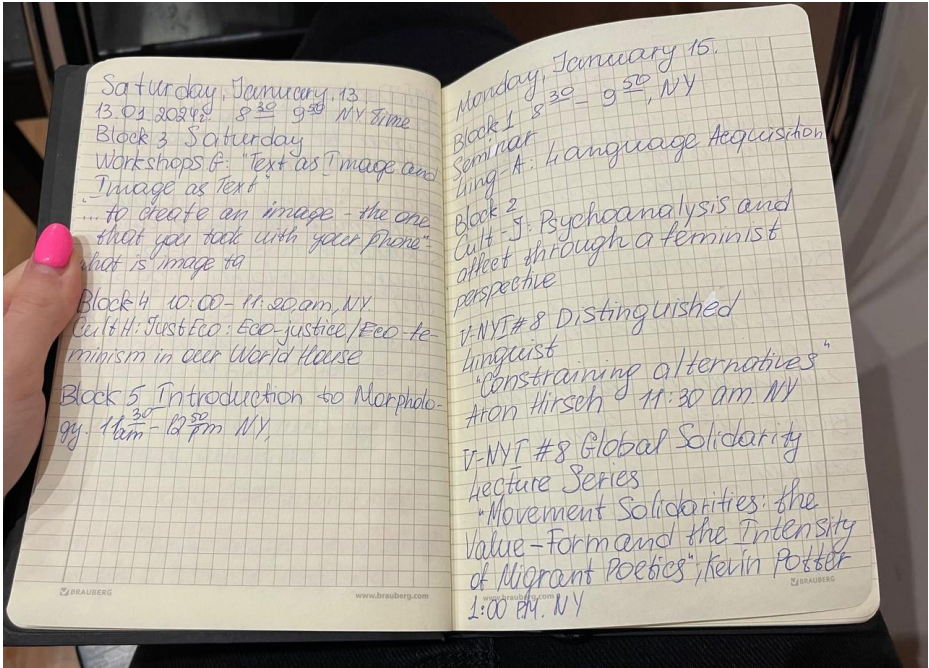 Saturday, January, 13
13.01.2024г. 8 30 9 50 NY Time
Block 3 Saturday
Workshops G: "Text as Image and
Image as Text"
"... to create an image - the one
that you took with your phone"
what is image to
Block 4 10:00 - 11:20 am, NY
Cult H: JustEco: Eco-justice/Eco fe-
minism in our World House
Block 5 Introduction to Morpholo-
gy. 11 30 am - 12 50 pm NY,
BRAUBERG
www.brauberg.com
Monday, January 15.
Block 1 8 30 - 9 50, NY
Seminar
Ling-A: Language Acquisition
Block 2
Cult-J: Psychoanalysis and
affect through a feminist
perspective
V-NYI #8 Distinguished
Linguist
"Constraining alternatives"
Aron Hirsch 11:30 am NY
V-NYI #8 Global Solidarity
Lecture Series
"Movement Solidarities: the
Value-Form and the Intensity
of Migrant Poetics", Kevin Potter
1:00 PM. NY
www.brauberg.com
BRAUBERG